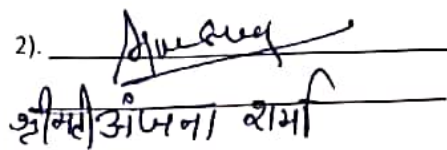 2).
श्रीमती अंजना शर्मा